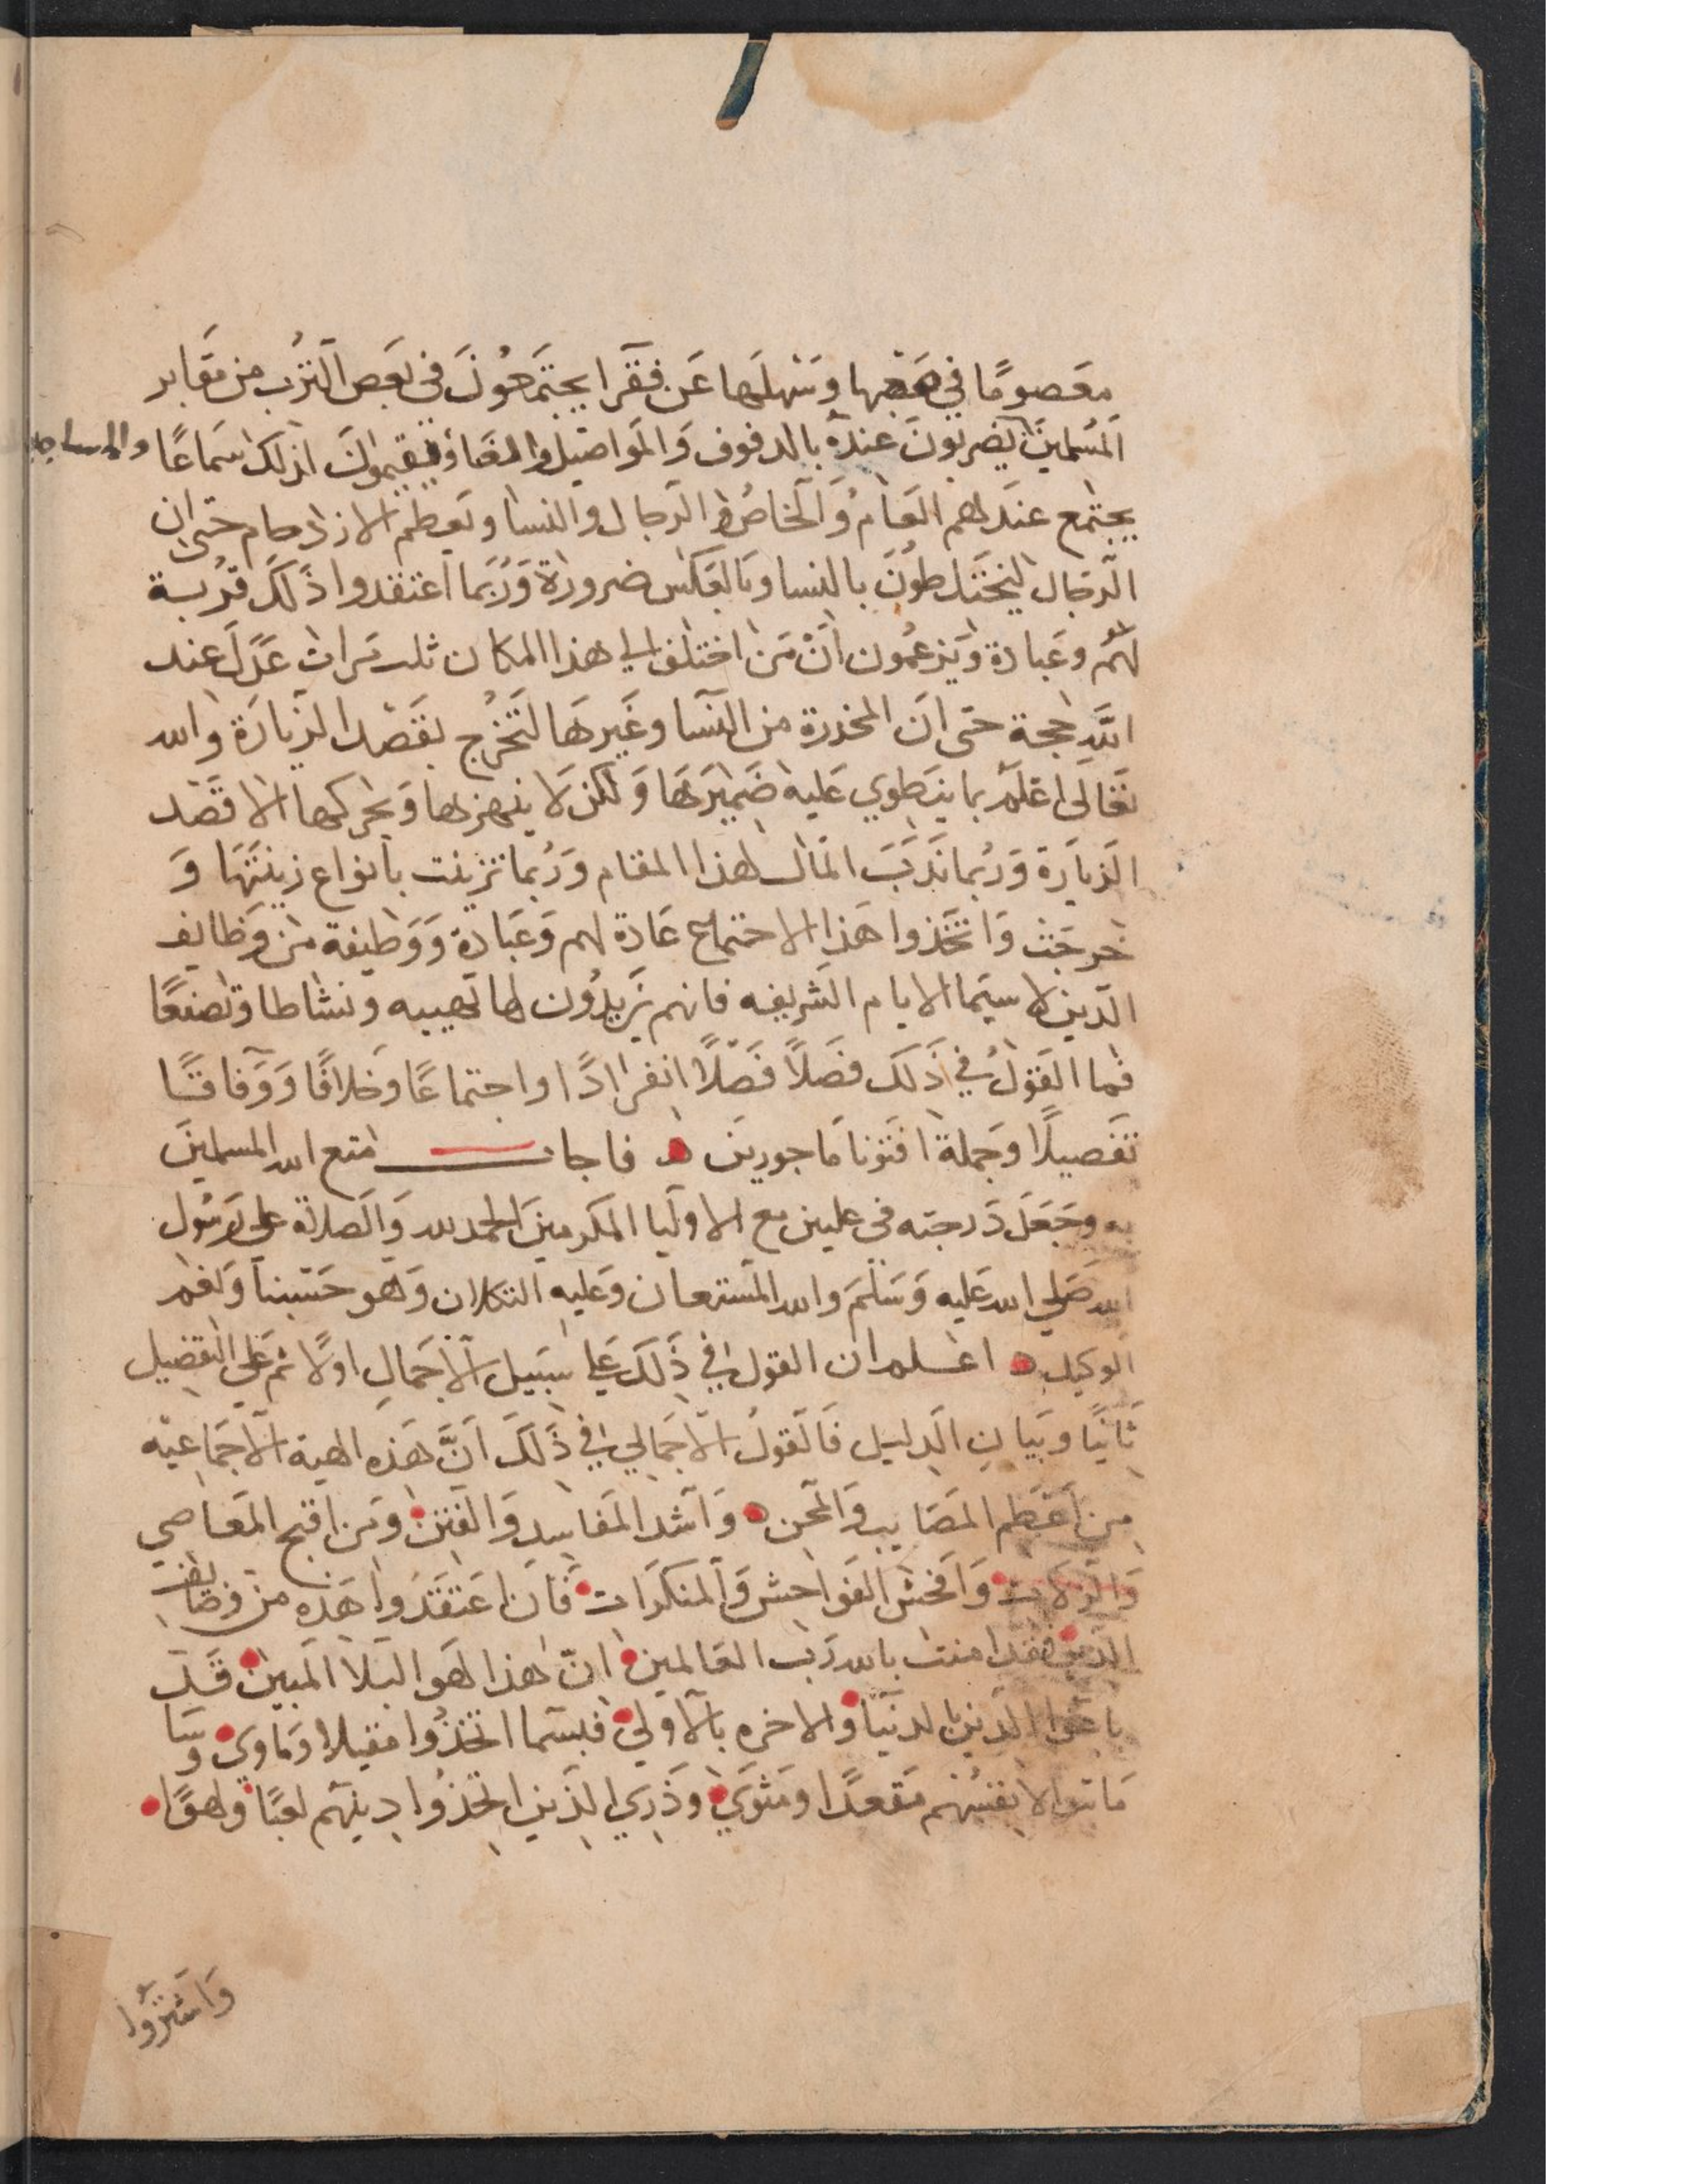 معصومًا في صعبها وسهلها عن فقرا يجتمعون في بعض الترب من مقابر
المسلمين يضربون عنده بالدفوف والمواصيل والغناء ويقيمون لذلك سماعًا والمساجد
يجتمع عندهم العام والخاص والرجال والنسا ويعظم الازدحام حتى ان
الرجال ليختلطون بالنسا وبالعكس ضرورة وربما اعتقدوا ذلك قربة
لهم وعبادة ويزعمون ان من اختلف الي هذا المكان ثلث مرات عدل عند
الله حجة حتى ان المخدرة من النسا وغيرها لتخرج بقصد الزيارة والله
تعالى اعلم بما ينطوي عليه ضميرها ولكن لا ينهزها ويحركها الا قصد
الزيارة وربما المال لهذا المقام وربما تزينت بانواع زينتها و
خرجت واتخذوا هذا الاجتماع عادة لهم وعبادة ووظيفة من وظايف
الدين لا سيما الايام الشريفه فانهم يزيدون لها ونشاطا وتصنعًا
فما القول في ذلك فصلًا فصلًا انفرادًا واجتماعًا وخلافًا ووفاقًا
تفصيلًا وجملة افتونا ماجورين ه فاجاب امتع الله المسلمين
به وجعل درجته في عليين مع الاوليا المكرمين الحمد لله والصلاة على رسول
الله صلي الله عليه وسلم والله المستعان وعليه التكلان وهو حسبنا ونعم
الوكيل ه اعلم ان القول في ذلك علي سبيل الاجمال اولًا ثم علي التفصيل
ثانيًا وبيان الدليل فالقول الاجمالي في ذلك انّ هذه الهية الاجماعيه
من اعظم المصايب والمحن ه واشد المفاسد والفتن ومن اقبح المعاصي
والزلات وافحش الفواحش والمنكرات فان اعتقدوا هذه من وضايف
الدين فقد امنت بالله رب العالمين انّ هذا لهو البلا المبين قد
باعوا الدين بالدنيا والاخره بالاولي فبسما اتخذوا مقيلا وماوى وسا
ماتبوا لانفسهم مقعدًا ومثوي وذري الذين اتخذوا دينهم لعبًا ولهوًا
واشتروا